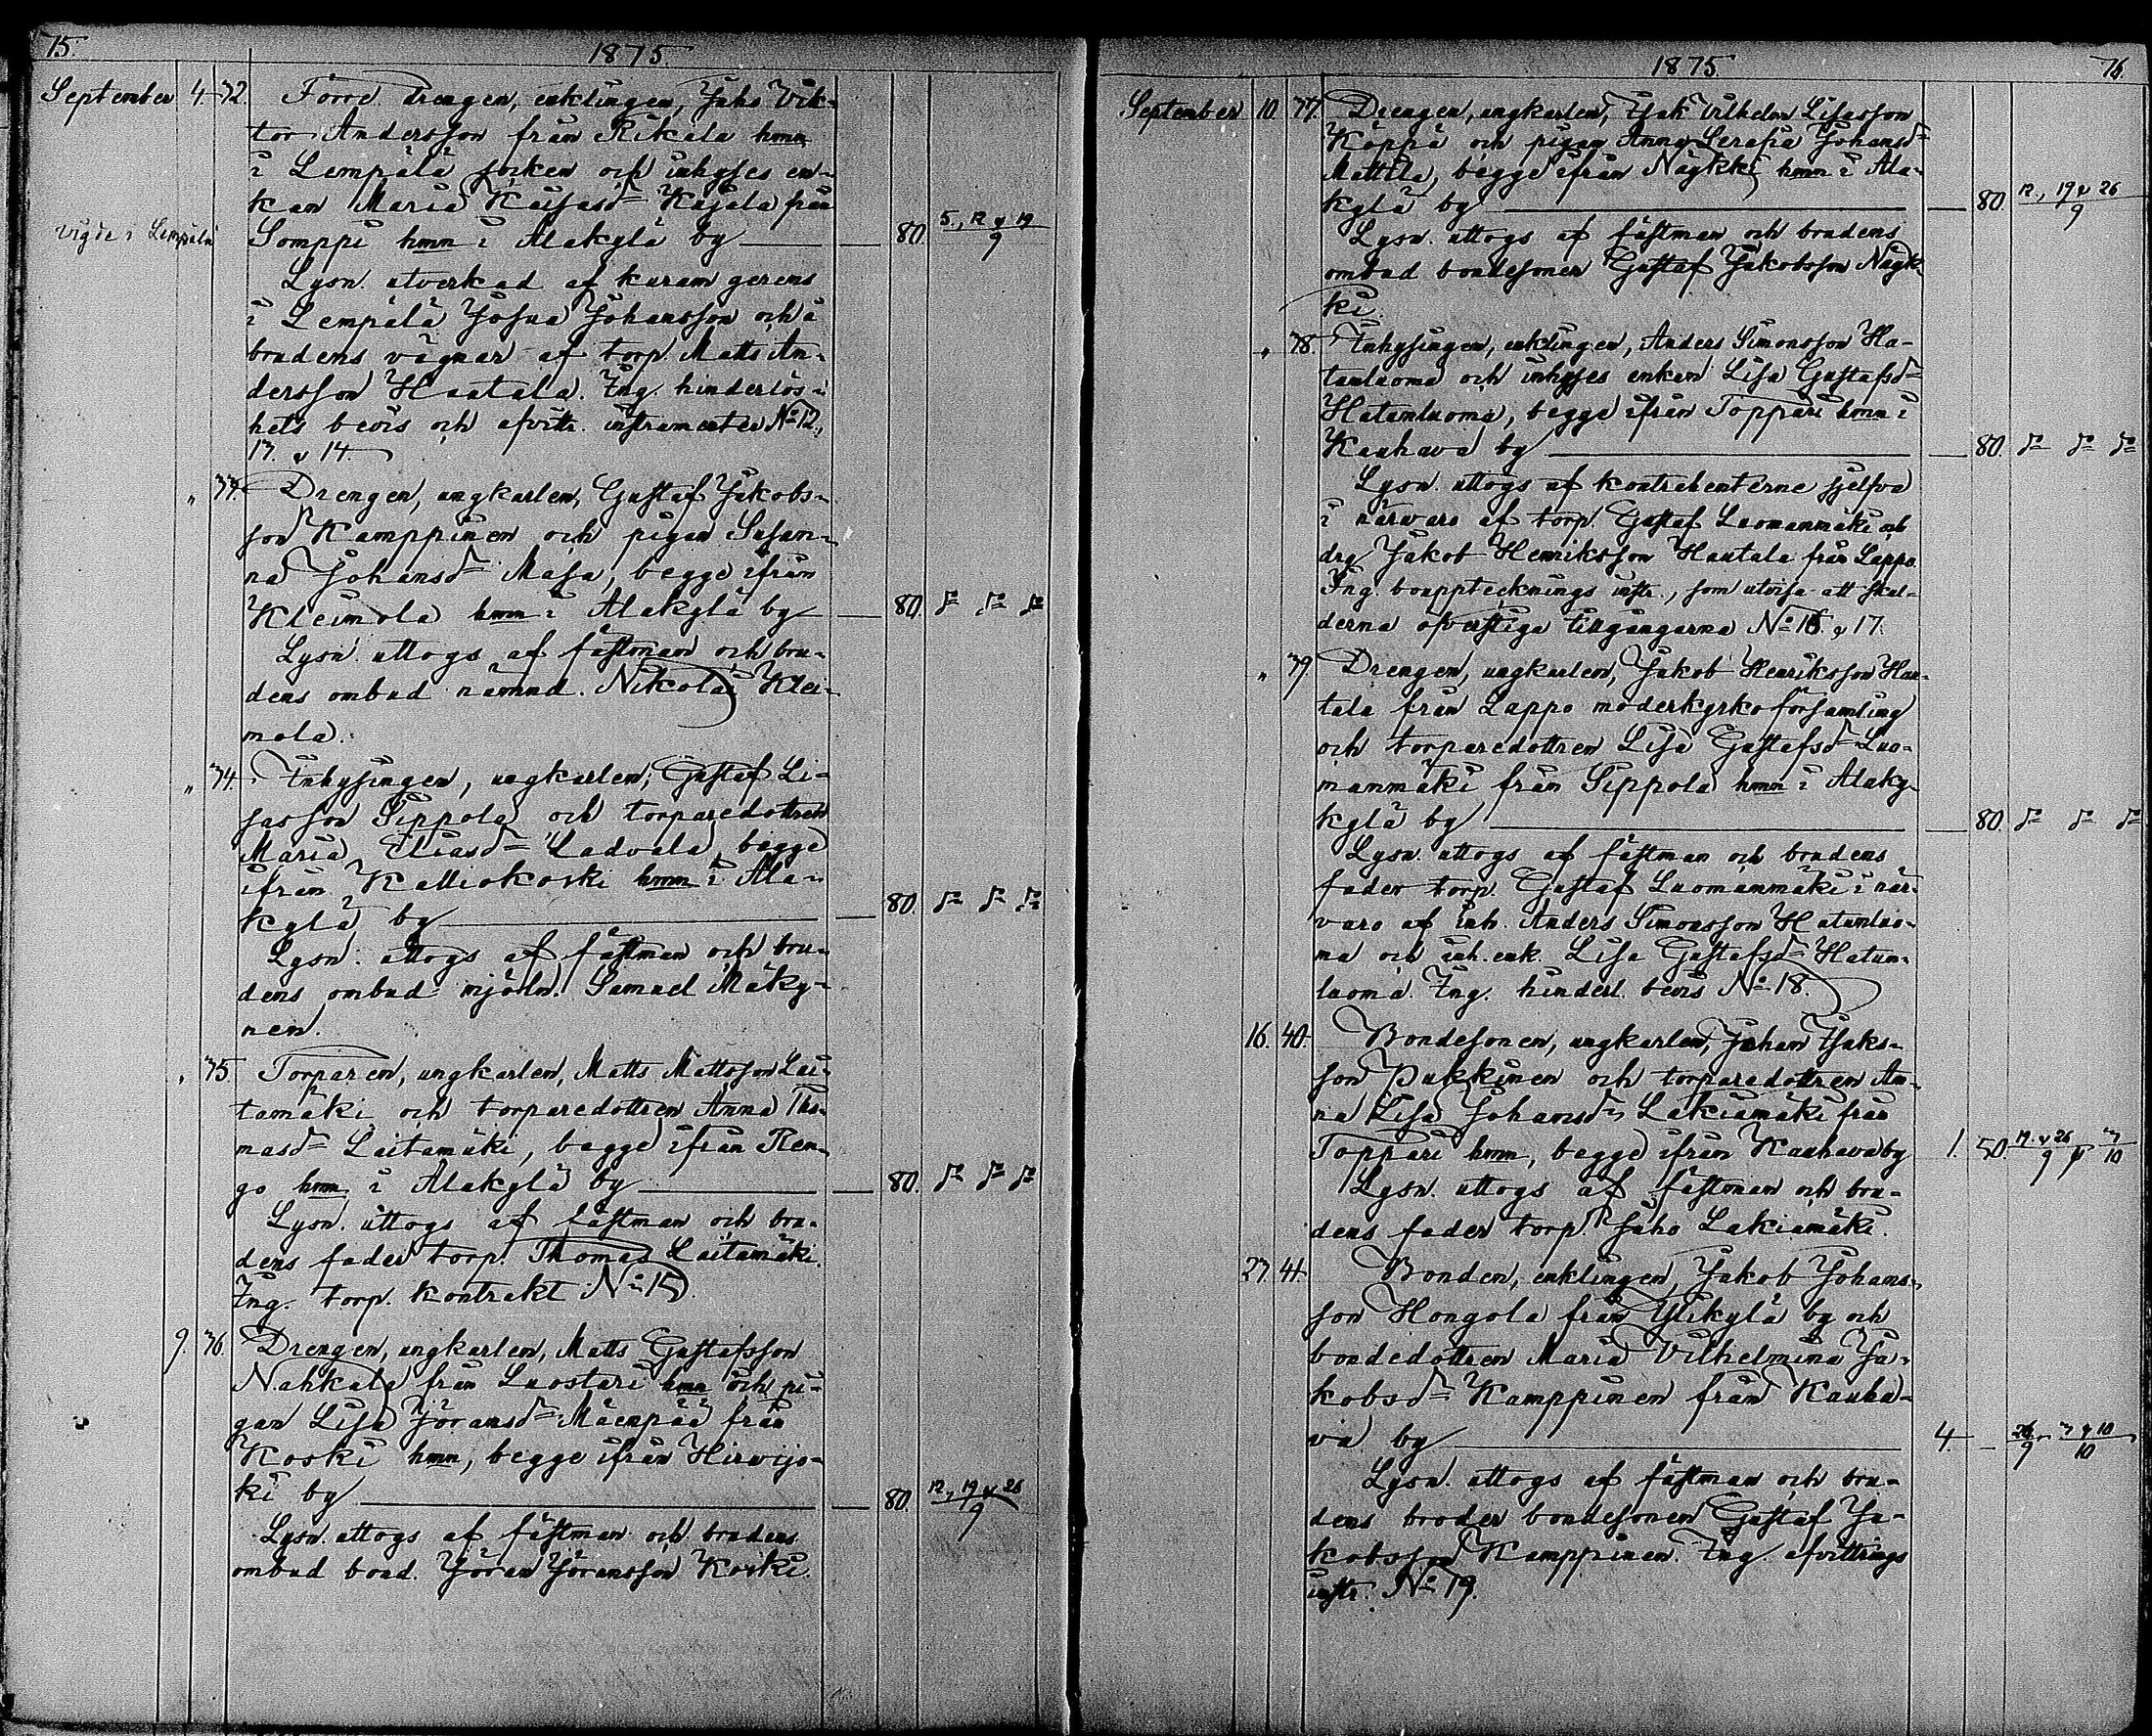 75.
1875
September 4. 32. Förre drengen, enklingen, Juho Vik-
tor Andersson från Rikala hmn
i Lempälä socken och inhyses en-
kan Maria Kaisasd= Kujala från
vigde i Lempälä Somppi hmn i Alakylä by — 80. 5., 12 & 19/9
Lysn. utverkad af
i Lempälä Josua Johansson och å
brudens vägnar af torp. Matts An-
dersson Haatala. Ing. hinderlös-
hets bevis och afvittr. instrumenter No 12,
13. & 14.
" 33. Drengen, ungkarlen, Gustaf Jakobs-
son Kamppinen och pigan Susan-
na Johansd= Masa, begge ifrån
Kleimola hmn i Alakylä by — 80. d= d= d=
Lysn. uttogs af fästman och bru-
dens ombud nämnd. Nikolai Klei-
mola.
" 34. Inhysingen, ungkarlen, Gustaf Li-
sasson Sippola och torparedottren
Maria Eliasd= Ladvala, begge
ifrån Kalliokoski hmn i Ala-
kylä by — 80. d= d= d=
Lysn. uttogs af fästman och bru-
dens ombud mjöln. Samuel Mäky-
nen.
" 35. Torparen, ungkarlen, Matts Mattsson Lai-
tamäki och torparedottren Anna Tho-
masd= Laitamäki, begge ifrån Ren-
go hmn i Alakylä by — 80. d= d= d=
Lysn. uttogs af fästman och bru-
dens fader torp. Thomas Laitamäki.
Ing. torp. kontrakt No 15.
9. 36. Drengen, ungkarlen, Matts Gustafsson
Nahkala från Luostari hmn och pi-
gan Lisa Jöransd= Mäenpää från
Koski hmn, begge ifrån Hirvijo-
ki by — 80. 12, 19 & 26/9
Lysn. uttogs af fästman och brudens
ombud bond. Jöran Jöransson Koski.
1875.
76.
September 10. 37. Drengen, ungkarlen, Isak Vilhelm Lisasson
Köppä och pigan Anna Serafia Johansd=
Mattila, begge ifrån Nägkki hmn i Ala-
kylä by — 80. 12, 19 & 26/9
Lysn. uttogs af fästman och brudens
ombud bondesonen Gustaf Jakobsson Nägk-
ki.
" 38. Inhysingen, enklingen, Anders Simonsson Ha-
tunluoma och inhyses enkan Lisa Gustafsd=
Hatunluoma, begge ifrån Toppari hmn i
Kauhava by — 80. d= d= d=
Lysn. uttogs af kontrahenterne sjelfva
i närvaro af torp. Gustaf Luomanmäki och
drg Jakob Henriksson Hautala från Lappo.
Ing. boupptecknings instr., som utvisa att skul-
derna öfverstiga tillgångarna No 16. & 17.
" 39. Drengen, ungkarlen, Jakob Henriksson Hau-
tala från Lappo moderkyrkoförsamling
och torparedottren Lisa Gustafsd= Luo-
manmäki från Sippola hmn i Alaky-
kylä by — 80. d= d= d=
Lysn. uttogs af fästman och brudens
fader torp. Gustaf Luomanmäki i när-
varo af inh. Anders Simonsson Hatunluo-
ma och inh. enk. Lisa Gustafsd= Hatun-
luoma. Ing. hinderl. bevis No 18.
16. 40. Bondesonen, ungkarlen, Johan Isaks-
son Pukkinen och torparedottren An-
na Lisa Johansd= Lakiamäki från
Toppari hmn, begge ifrån Kauhava by 1. 50. 19. & 26/9 & 3/10
Lysn. uttogs af fästman och bru-
dens fader torp. Juho Lakiamäki.
23. 41. Bonden, enklingen, Jakob Johans-
son Hongola från Ylikylä by och
bondedottren Maria Vilhelmina Ja-
kobsd= Kamppinen från Kauha-
va by — 4. — 26/9 3 & 10/10
Lysn. uttogs af fästman och bru-
dens broder bondesonen Gustaf Ja-
kobsson Kamppinen. Ing. afvittrings
instr. No 19.